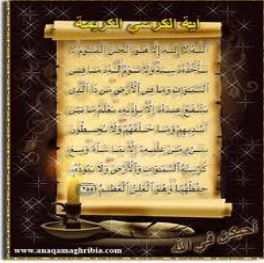 آية الكرسي الكريمة
اللَّهُ لَا إِلَٰهَ إِلَّا هُوَ الْحَيُّ الْقَيُّومُ لَا
تَأْخُذُهُ سِنَةٌ وَلَا نَوْمٌ لَهُ مَا فِي
السَّمَاوَاتِ وَمَا فِي الْأَرْضِ مَنْ ذَا الَّذِي
يَشْفَعُ عِنْدَهُ إِلَّا بِإِذْنِهِ يَعْلَمُ مَا بَيْنَ
أَيْدِيهِمْ وَمَا خَلْفَهُمْ وَلَا يُحِيطُونَ
بِشَيْءٍ مِنْ عِلْمِهِ إِلَّا بِمَا شَاءَ وَسِعَ
كُرْسِيُّهُ السَّمَاوَاتِ وَالْأَرْضَ وَلَا يَئُودُهُ
حِفْظُهُمَا وَهُوَ الْعَلِيُّ الْعَظِيمُ ٢٥٥
في الله
www.anaqamaghribia.com